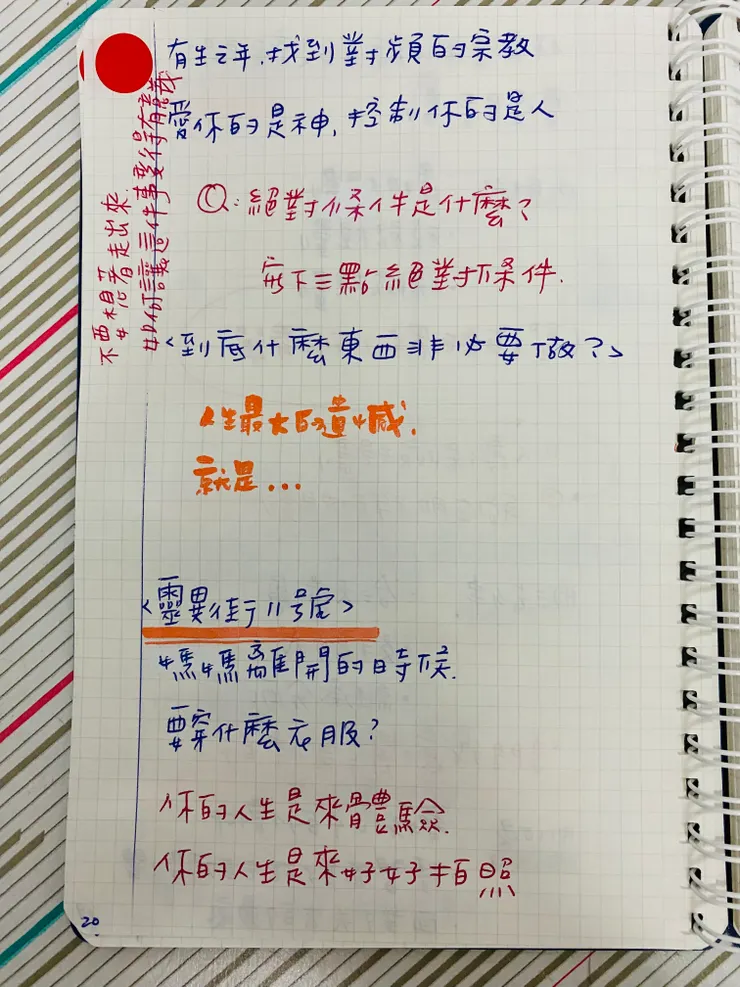 有生之年,找到對頻的宗教
愛你的是神,控制你的是人
Q:絕對條件是什麼?
寫下三點絕對條件.
<到底什麼東西非必要做?>
不要想著走出來.
如何讓這件事變得有意義
人生最大的遺憾,
就是...
<靈異街11號>
媽媽離開的時候.
要穿什麼衣服?
你的人生是來體驗.
你的人生是來好好拍照
20